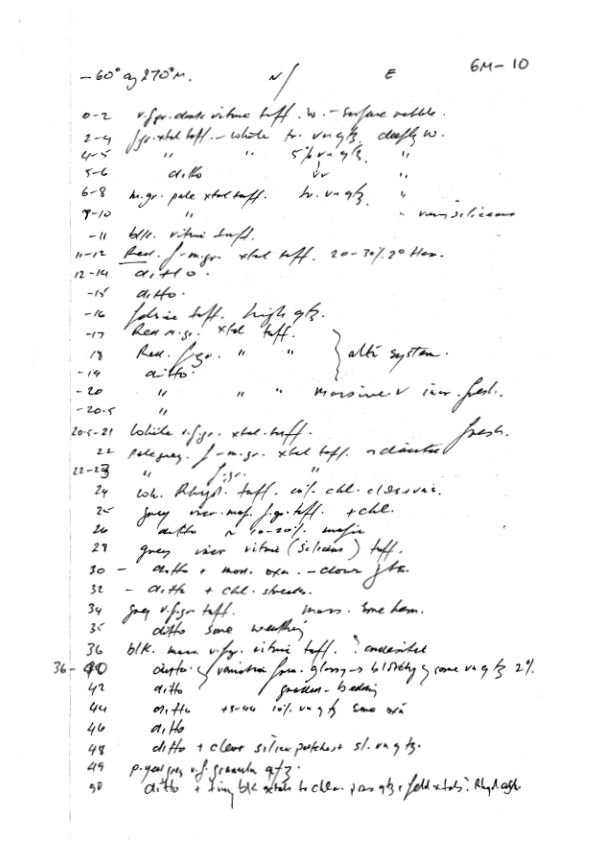 -60° az 270°M. N/ E 6M-10
0-2 v.f.gr. vitric tuff. w. - surface rubble.
2-4 f.gr. xtal tuff. - white tr. vn qtz. deeply w.
4-5 " " 5% vn qtz. "
5-6 ditto tr "
6-8 m.gr. pale xtal tuff. tr. vn qtz. "
9-10 " " very siliceous
-11 blk. vitric tuff.
11-12 Red. f-m.gr. xtal tuff. 20-30% 2° Hem.
12-14 ditto.
-15 ditto.
-16 felsic tuff. high qtz.
-17 Red m.gr. xtal tuff.
18 Red. f.gr. " " } altn system.
-19 ditto.
-20 " " " massive incr. fresh.
-20.5 "
20.5-21 White v.f.gr. xtal.tuff. fresh.
22 pale grey. f-m.gr. xtal tuff.
22-23 " f.gr. "
24 wh. Rhyol. tuff. 10% chl.
25 grey f.gr. tuff. +chl.
26 ditto ~ 10-20% mafic
28 grey vitric (siliceous) tuff.
30 - ditto + mod. oxn.
32 - ditto + chl. streaks.
34 grey v.f.gr tuff. mass. some hem.
35 ditto some weathering
36 blk. mass v.f.gr. vitric tuff. ? andesite
36-40 ditto. from glossy → blotchy some vn qtz 2%.
42 ditto graded-bedding
44 ditto 43-44 10% vn qtz some oxn
46 ditto
48 ditto + clear silica patches + sl. vn qtz.
49 v.f. granular qtz.
50 ditto + tiny blk xtals to chlor. qtz + feld xtals ? Rhyol ash.